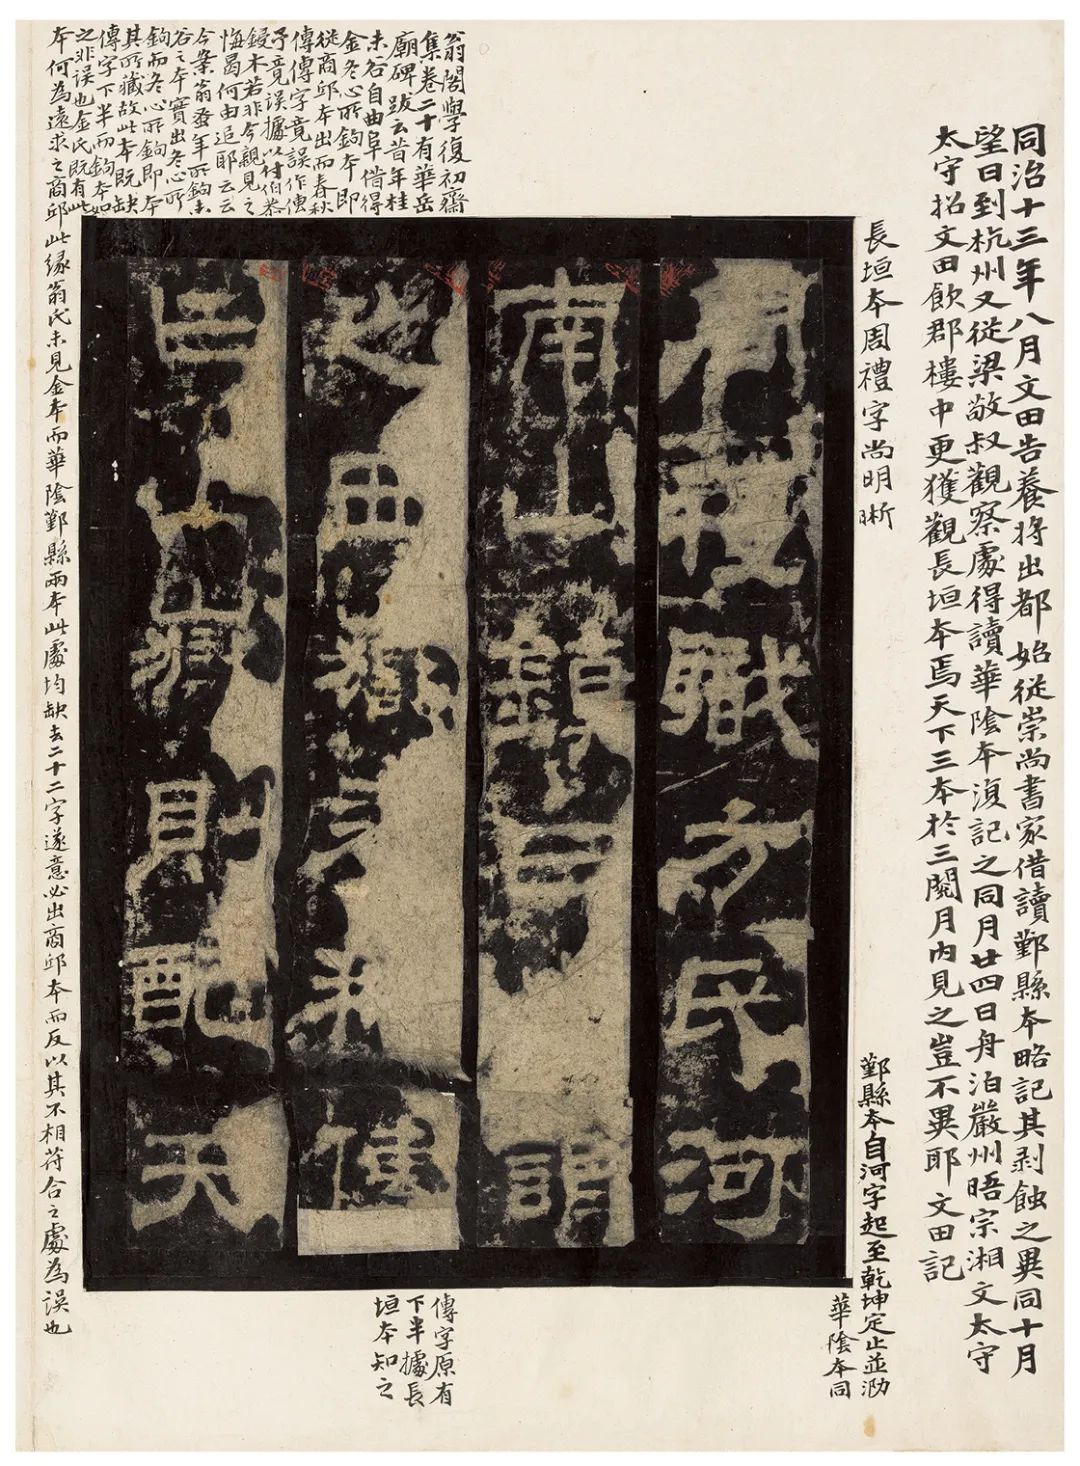 同治十三年八月文田告養將出都始從崇尚書家借讀鄞縣本略記其剥蝕之異同十月
望日到杭州又從梁敬叔觀察處得讀華陰本復記之同月廿四日舟泊嚴州晤宗湘文太守
太守招文田飲郡樓中更獲觀長垣本焉天下三本於三閱月内見之豈不異耶 文田記
長垣本周禮字尚明晰
鄞縣本自河字起至乾坤定止並泐
華陰本同
周禮職方氏河
南山鎮曰謂
之西嶽春秋傳
曰山嶽則配天
傳字原有
下半據長
垣本知之
翁閣學復初齋
集卷二十有華岳
廟碑跋云昔年桂
未谷自曲阜借得
金冬心所鈎本即
從商邱本出而春秋
傳傳字竟誤作
予竟誤據以付伯恭
鋟木若非今親見之
悔曷何由追耶云云
今案翁蚤年所鈎未
谷之本實出冬心所
鈎而冬心所鈎即本
其所藏故此本既缺
傳字下半而鈎本如
之非誤也金氏既有此
本何為遠求之商邱此緣翁氏未見金本而華陰鄞縣兩本此處均缺去二十二字遂意必出商邱本而反以其不相符合之處為誤也